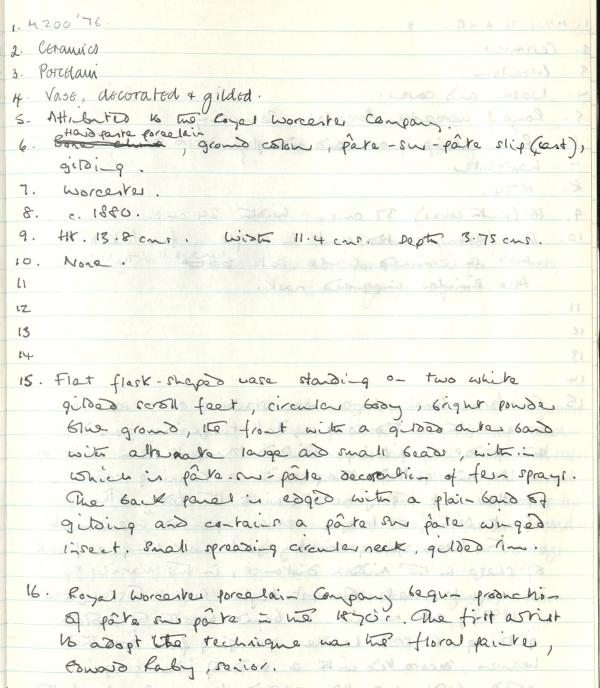 1. M200'76.
2. Ceramics
3. Porcelain
4. Vase, decorated & gilded.
5. Attributed to the Royal Worcester Company.
Hard paste porcelain
6. Bone china, ground colour, pâte-sur-pâte slip (cast),
gilding.
7. Worcester.
8. c. 1880.
9. Ht. 13.8 cms. Width 11.4 cms. Depth 3.75 cms.
10. None.
11
12
13
14
15. Flat flask-shaped vase standing on two white
gilded scroll feet, circular body, bright powder
blue ground, the front with a gilded outer band
with alternate large and small beads within
which is pâte-sur-pâte decoration of fern sprays.
The back panel is edged with a plain band of
gilding and contains a pâte sur pâte winged
insect. Small spreading circular neck, gilded rim.
16. Royal Worcester Porcelain Company begun production
of pâte sur pâte in the 1870's. The first artist
to adopt the technique was the floral painter,
Edward Raby, senior.